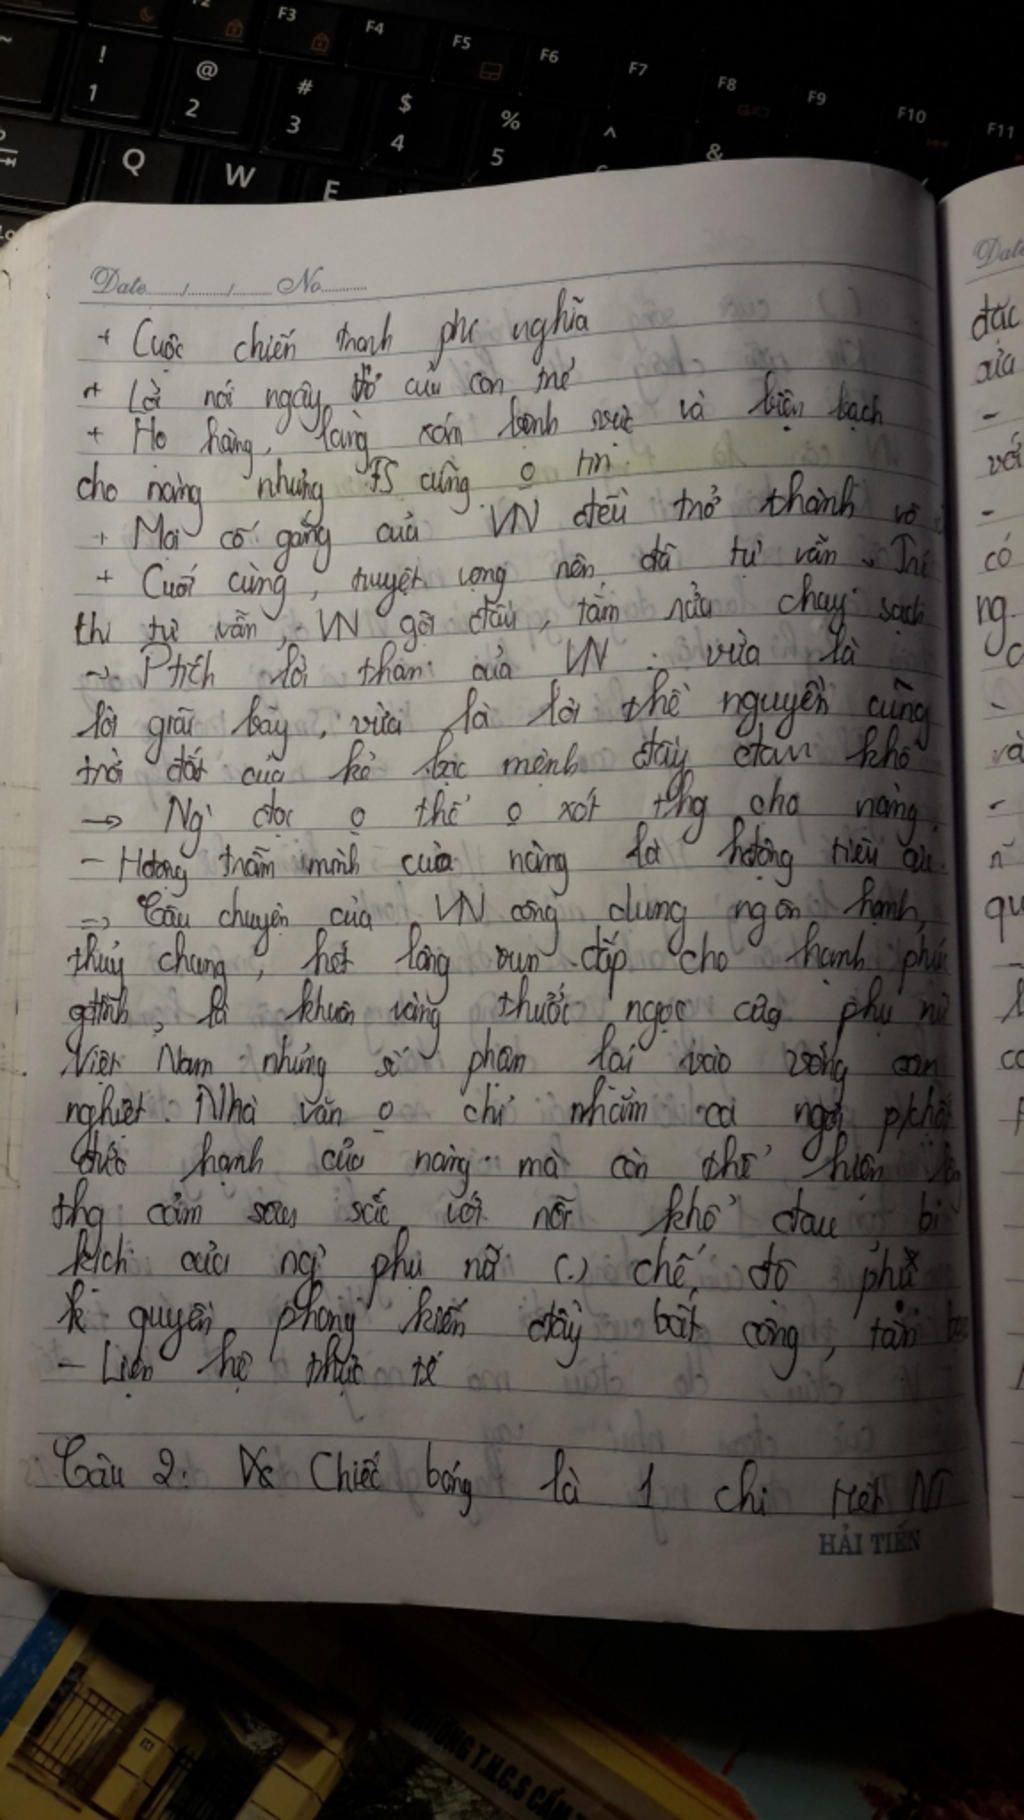 F3 F4 F5 F6 F7 F8 F9 F10 F11
! 1 @ 2 # 3 $ 4 % 5 ^ &
Q W E
Date...../....../...... No..........
+ Cuộc chiến tranh phi nghĩa
+ Lời nói ngây thơ của con trẻ
+ Họ hàng, làng xóm bênh vực và biện bạch
cho nàng nhưng TS cũng o tin
+ Mọi cố gắng của VN đều trở thành vô
+ Cuối cùng, tuyệt vọng nên đã tự vẫn.
thi tự vẫn, VN gội đầu, tắm rửa chay sạch
Ptích lời than của VN : vừa là
lời giãi bày, vừa là lời thề nguyền cùng
trời đất của kẻ bạc mệnh đầy đau khổ
→ Ng' đọc o thể o xót thg cho nàng.
- Hđộng trẫm mình của nàng là hđộng tiêu cực.
=> Câu chuyện của VN công dung ngôn hạnh,
thủy chung, hết lòng vun đắp cho hạnh phúc
gđình, là khuôn vàng thước ngọc của phụ nữ
Việt Nam nhưng số phận lại vào vòng oan
nghiệt. Nhà văn o chỉ nhằm ca ngợi
đức hạnh của nàng mà còn thể hiện
thg cảm sâu sắc với nỗi khổ đau bi
kịch của ng' phụ nữ (.) chế độ phụ
k quyền phong kiến đầy bất công, tàn
- Liên hệ thực tế
Câu 2: Chiếc bóng là 1 chi tiết NT
HẢI TIẾN
Date
đặc
của
-
với
-
có
và
qu
TRƯỜNG T.H.C.S CẨM